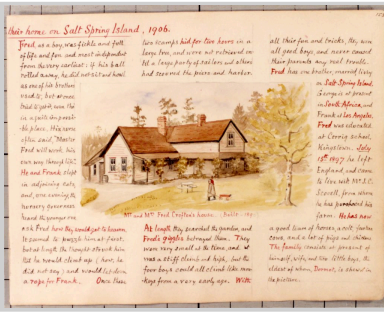 their home on Salt Spring Island, 1906.
Fred, as a boy, was fickle and full
of life and fun and most independent
from the very earliest: if his ball
rolled away, he did not sit and howl
as one of his brothers
used to, but at once
tried to get it, even this
in a
place. His nurse
often said, "Master
Fred will work his
own way through life".
He and Frank slept
in adjoining cots,
and, one evening, the
nursery governess
heard the younger one
ask Fred how they would get to heaven.
It seemed to puzzle him at first.
but at length he thought
that he would climb up (how, he
did not say) and would let down
a rope for Frank. Once these
two scamps hid for two hours in a
large tree, and were not retrieved un-
til a large party of sailors and others
had scoured the place and harbor.
Mr and Mrs Fred Crofton's house. Built
At length, they searched the garden, and
Fred's giggles betrayed them. They
were very small at the time, and it
was a stiff climb and high, but the
four boys could all climb like mon-
keys from a very early age. With
all their fun and tricks, they were
all good boys, and never caused
their parents any real trouble.
Fred has one brother, married living
on Salt Spring Island,
George is at present
in South Africa, and
Frank at Los Angeles.
Fred was educated
at Corrig School,
Kingstown. July
15th 1897 he left
England, and came
to live with Mr. J.C.
Scovell, from whom
he has purchased his
farm. He has now
a good team of horses, a colt, fourteen
cows, and a lot of pigs and chickens.
The family consists at present of
himself, wife and two little boys, the
oldest of whom, Dermot, is shown in
the picture.